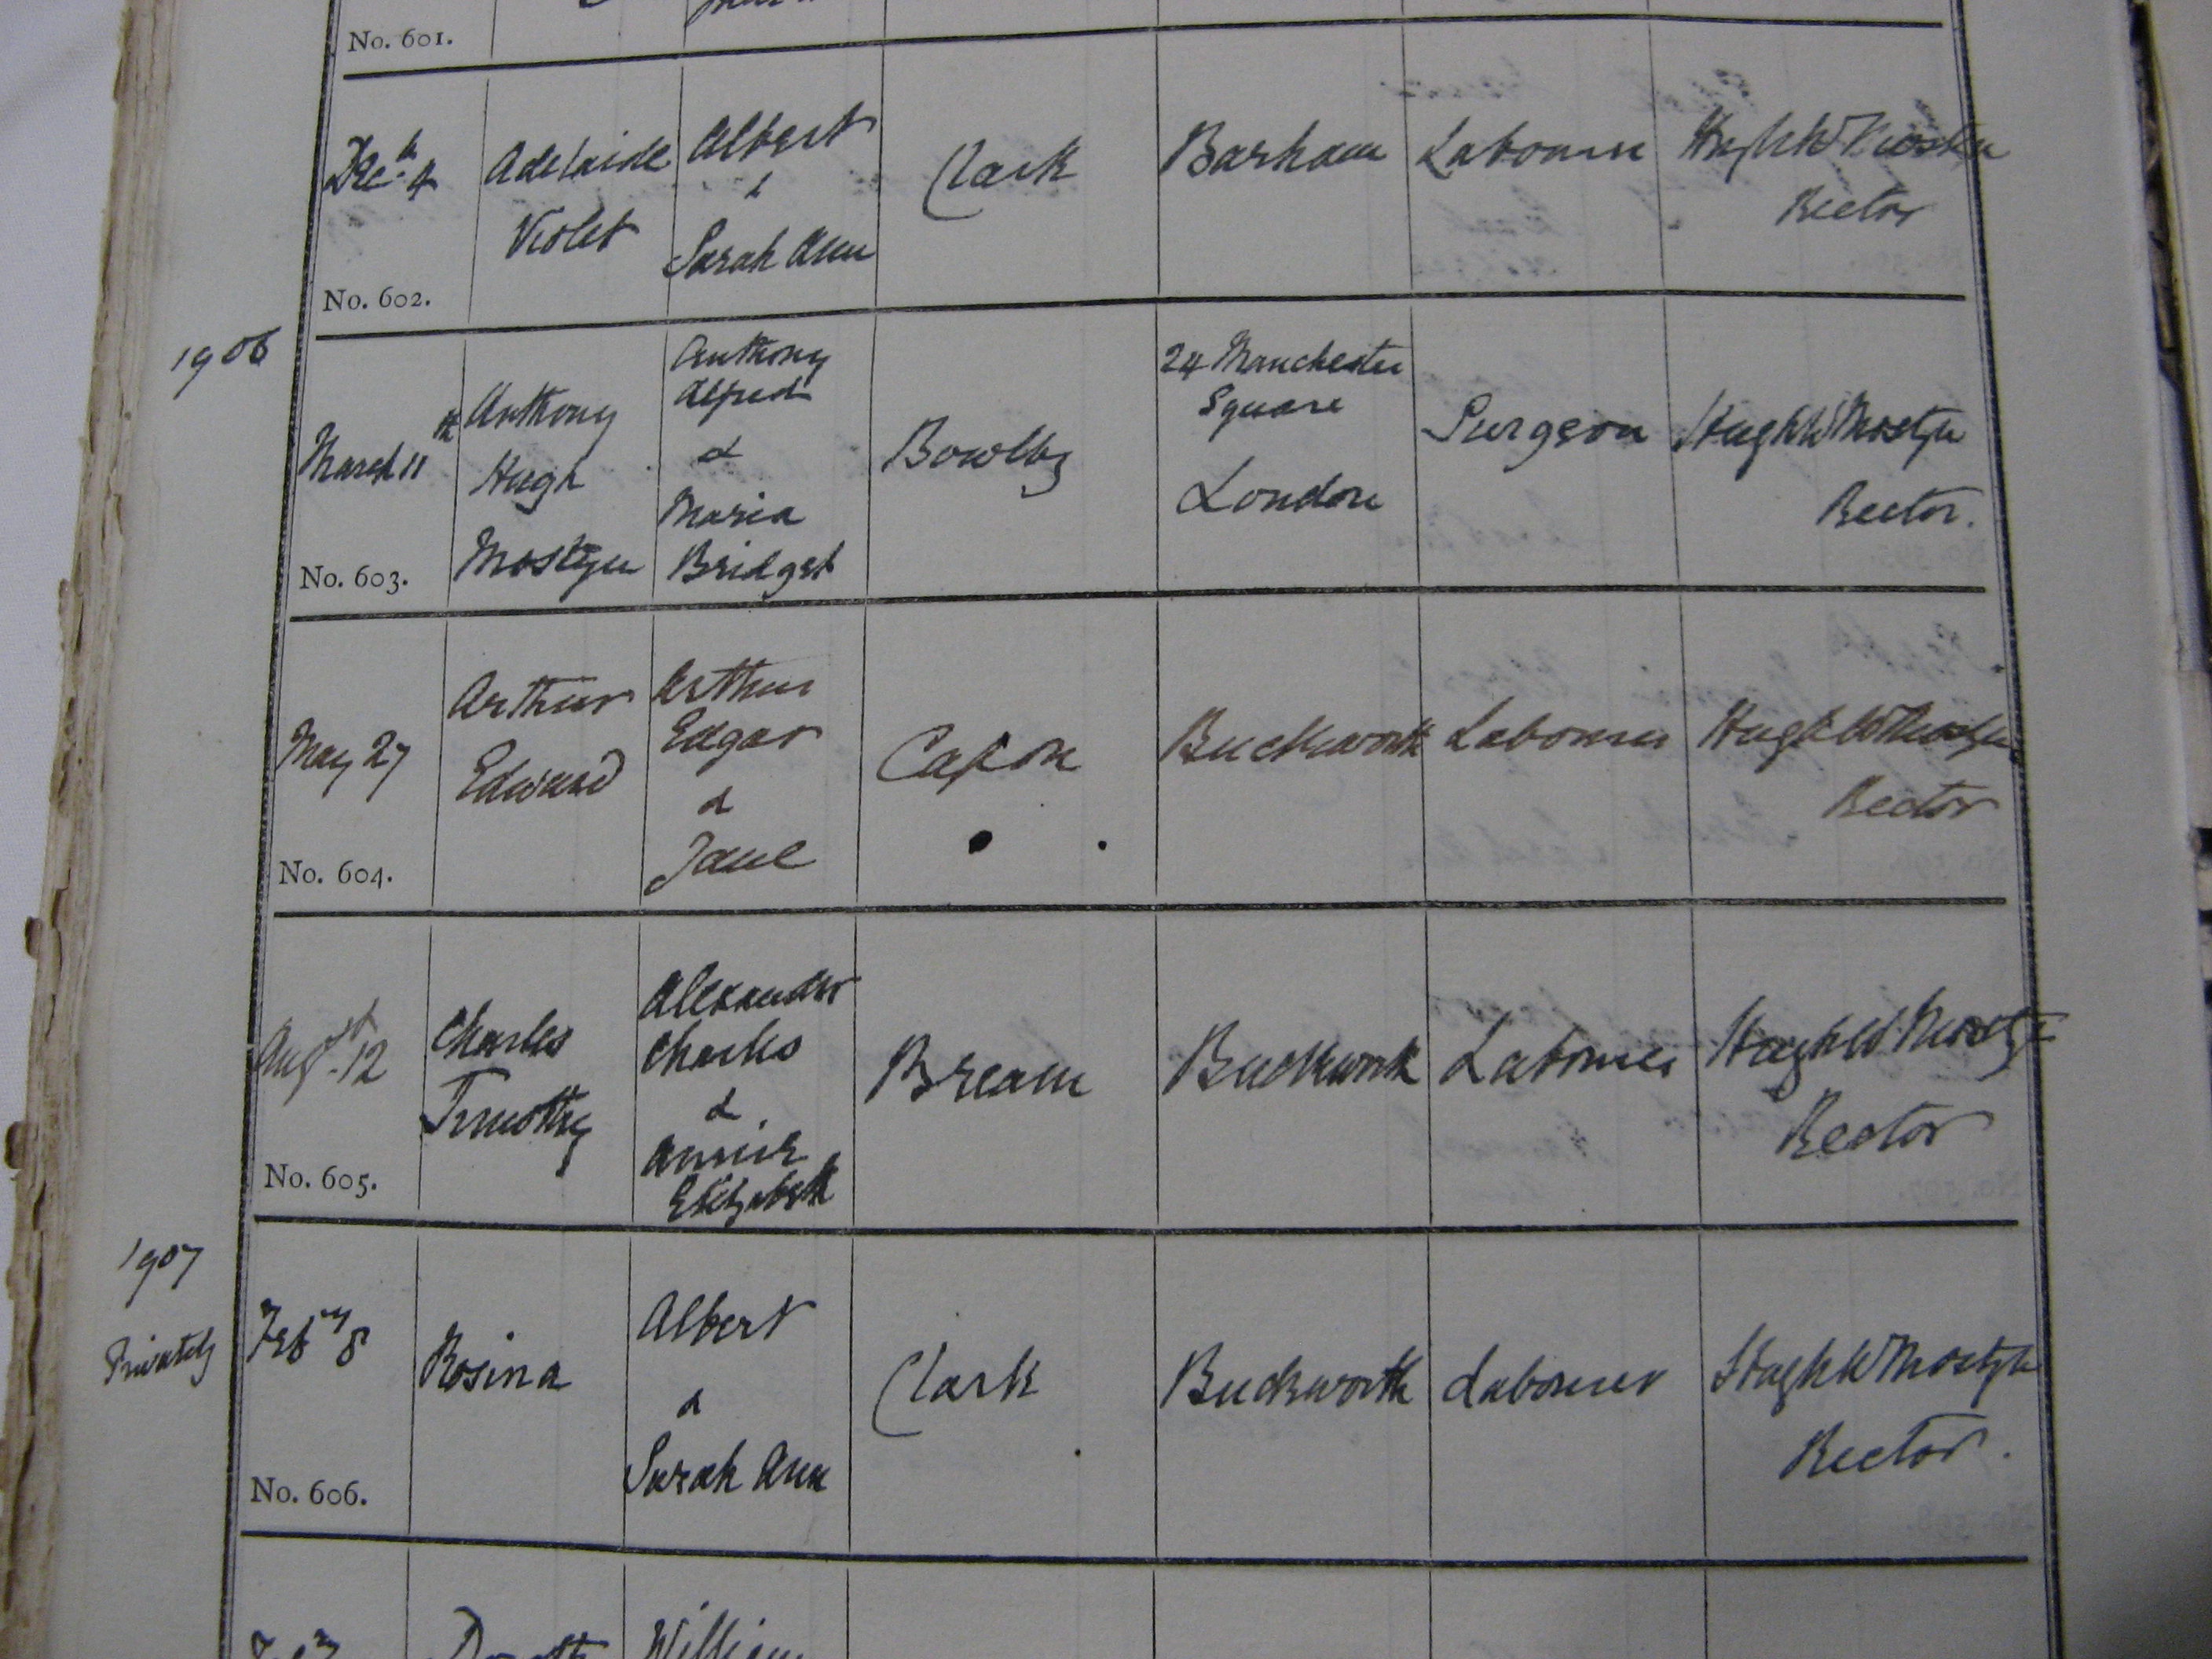 No. 601.
Dec. 4th
Adelaide
Violet
Albert
&
Sarah Ann
Clark
Barham
Labourer
Hugh W Mostyn
Rector
No. 602.
1906
March 11th
Anthony
Hugh
Mostyn
Anthony
Alfred
&
Maria
Bridget
Bowlby
24 Manchester
Square
London
Surgeon
Hugh W Mostyn
Rector.
No. 603.
May 27
Arthur
Edward
Arthur
Edgar
&
Jane
Capon
Buckworth
Labourer
Hugh W Mostyn
Rector
No. 604.
Augst. 12
Charles
Timothy
Alexander
Charles
&
Annie
Elizabeth
Bream
Buckworth
Labourer
Hugh W. Mostyn
Rector
No. 605.
1907
Privately
Feby 8
Rosina
Albert
&
Sarah Ann
Clark
Buckworth
Labourer
Hugh W Mostyn
Rector.
No. 606.
William